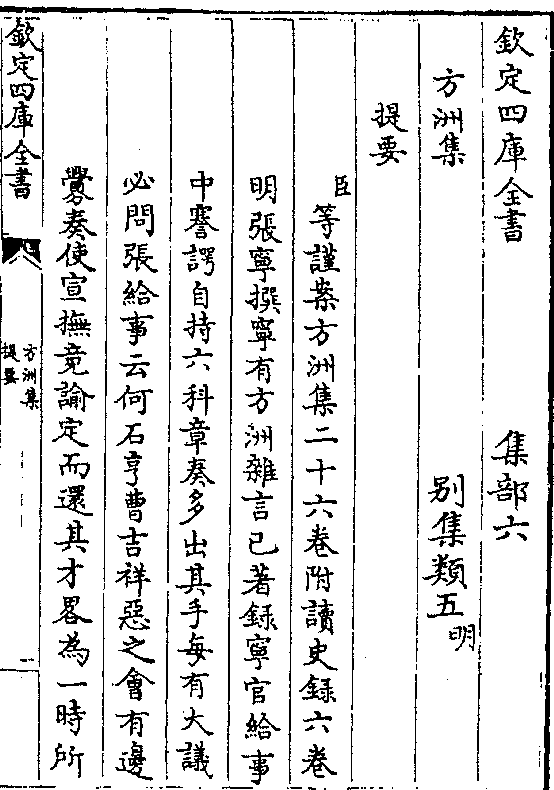 欽定四庫全書　　　集部六
方洲集　　　　　　别集類五明
提要
臣等謹案方洲集二十六卷附讀史録六卷
明張寧撰寧有方洲雜言已著録寧官給事
中謇諤自持六科章奏多出其手每有大議
必問張給事云何石亨曹吉祥惡之會有邊
釁奏使宣撫竟諭定而還其才畧為一時所
欽定四庫全書
方洲集
提要
一